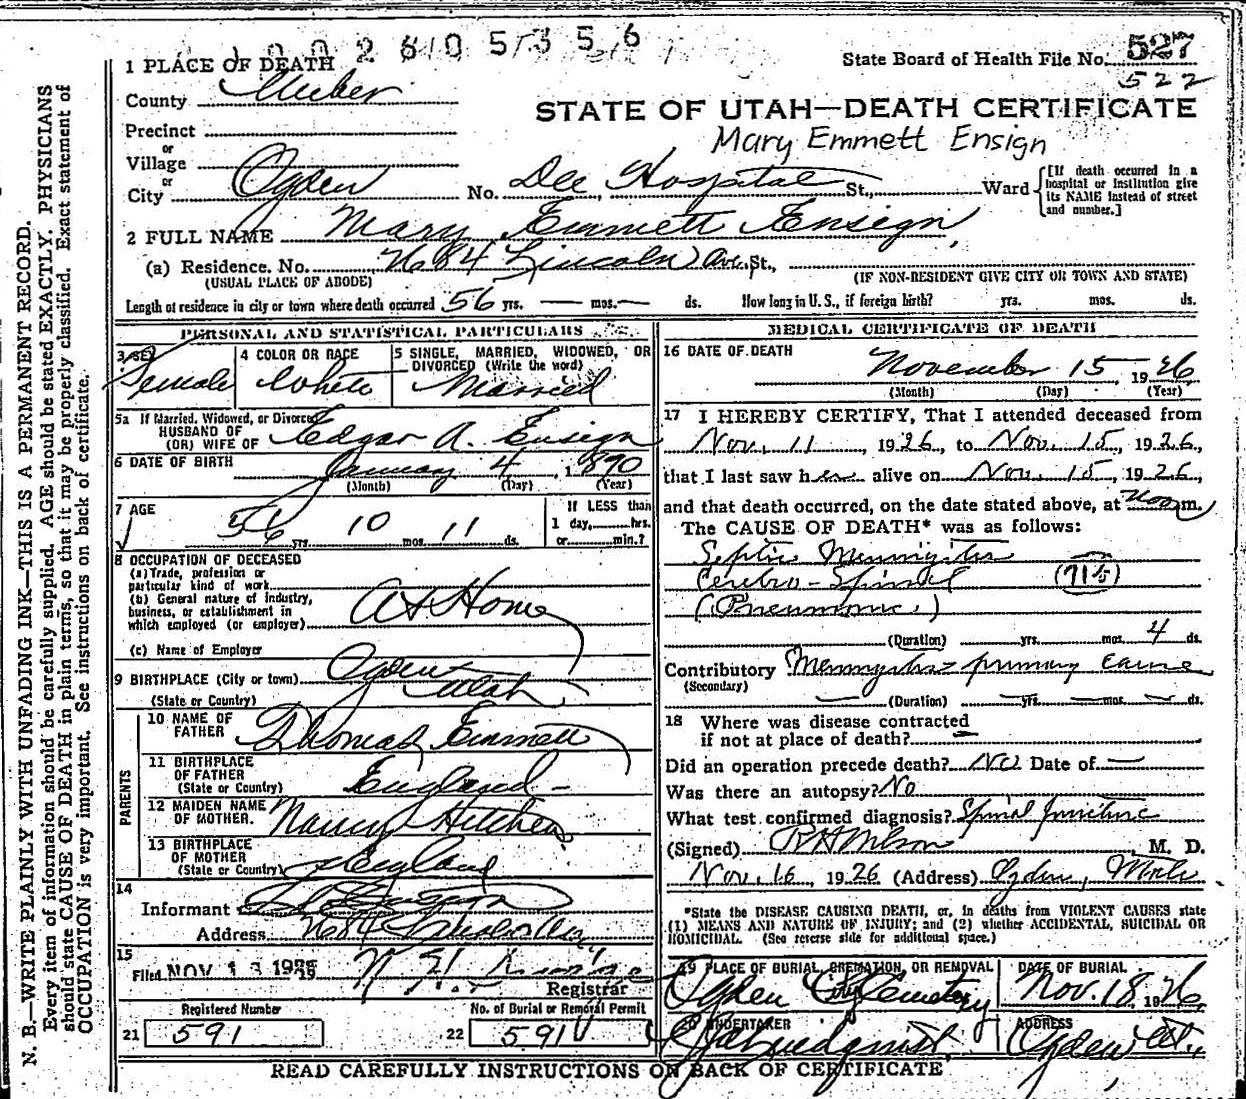 1 0 0 2 6 1 0 5 3 5 6
State Board of Health File No. 527
522
1 PLACE OF DEATH
County Weber
STATE OF UTAH—DEATH CERTIFICATE
Mary Emmett Ensign
Precinct
or
Village
or
City Ogden No. Dee Hospital St., Ward
[If death occurred in a hospital or institution give its NAME instead of street and number.]
2 FULL NAME Mary Emmett Ensign
(a) Residence. No. 2684 Lincoln Ave. St.,
(USUAL PLACE OF ABODE) (IF NON-RESIDENT GIVE CITY OR TOWN AND STATE)
Length of residence in city or town where death occurred 56 yrs. — mos. — ds. How long in U. S., if foreign birth? yrs. mos. ds.
PERSONAL AND STATISTICAL PARTICULARS
3 SEX Female
4 COLOR OR RACE White
5 SINGLE, MARRIED, WIDOWED, OR DIVORCED (Write the word) Married
5a If Married, Widowed, or Divorced
HUSBAND OF
(OR) WIFE OF Edgar A. Ensign
6 DATE OF BIRTH January 4, 1890
(Month) (Day) (Year)
7 AGE 56 yrs. 10 mos. 11 ds.
If LESS than
1 day, hrs.
or min.?
8 OCCUPATION OF DECEASED
(a) Trade, profession or
particular kind of work
(b) General nature of industry,
business, or establishment in
which employed (or employer) At Home
(c) Name of Employer
9 BIRTHPLACE (City or town) Ogden
(State or Country) Utah
PARENTS
10 NAME OF
FATHER Thomas Emmett
11 BIRTHPLACE
OF FATHER
(State or Country) England
12 MAIDEN NAME
OF MOTHER. Nancy Hitchen
13 BIRTHPLACE
OF MOTHER
(State or Country) England
14
Informant Ensign
Address 2684
15
Filed NOV 1 1926
Registrar
Registered Number
21 591
No. of Burial or Removal Permit
22 591
MEDICAL CERTIFICATE OF DEATH
16 DATE OF DEATH
November 15, 1926
(Month) (Day) (Year)
17 I HEREBY CERTIFY, That I attended deceased from
Nov. 11, 1926, to Nov. 15, 1926,
that I last saw her alive on Nov. 15, 1926,
and that death occurred, on the date stated above, at Noon m.
The CAUSE OF DEATH* was as follows:
Septic Meningitis
Cerebro-Spinal (71b)
(Pneumonic.)
(Duration) yrs. mos. 4 ds.
Contributory Meningitis primary cause
(Secondary)
(Duration) — yrs. — mos. — ds.
18 Where was disease contracted
if not at place of death? —
Did an operation precede death? No Date of —
Was there an autopsy? No
What test confirmed diagnosis? Spinal puncture
(Signed) , M. D.
Nov. 16, 1926 (Address) Ogden, Utah
*State the DISEASE CAUSING DEATH, or, in deaths from VIOLENT CAUSES state
(1) MEANS AND NATURE OF INJURY; and (2) whether ACCIDENTAL, SUICIDAL OR
HOMICIDAL. (See reverse side for additional space.)
19 PLACE OF BURIAL, CREMATION, OR REMOVAL
Ogden City Cemetery
DATE OF BURIAL
Nov. 18 1926
20 UNDERTAKER
Lindquist
ADDRESS
Ogden Ut.,
READ CAREFULLY INSTRUCTIONS ON BACK OF CERTIFICATE
N. B.—WRITE PLAINLY WITH UNFADING INK—THIS IS A PERMANENT RECORD.
Every item of information should be carefully supplied. AGE should be stated EXACTLY. PHYSICIANS
should state CAUSE OF DEATH in plain terms, so that it may be properly classified. Exact statement of
OCCUPATION is very important. See instructions on back of certificate.